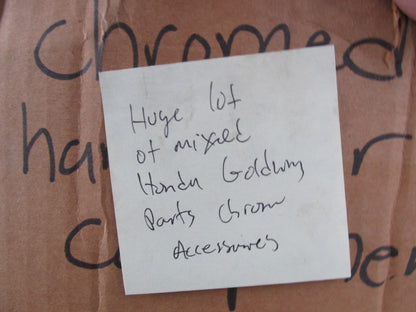 chromed
Huge lot
of mixed
Honda Goldwing
parts chrome
Accessories